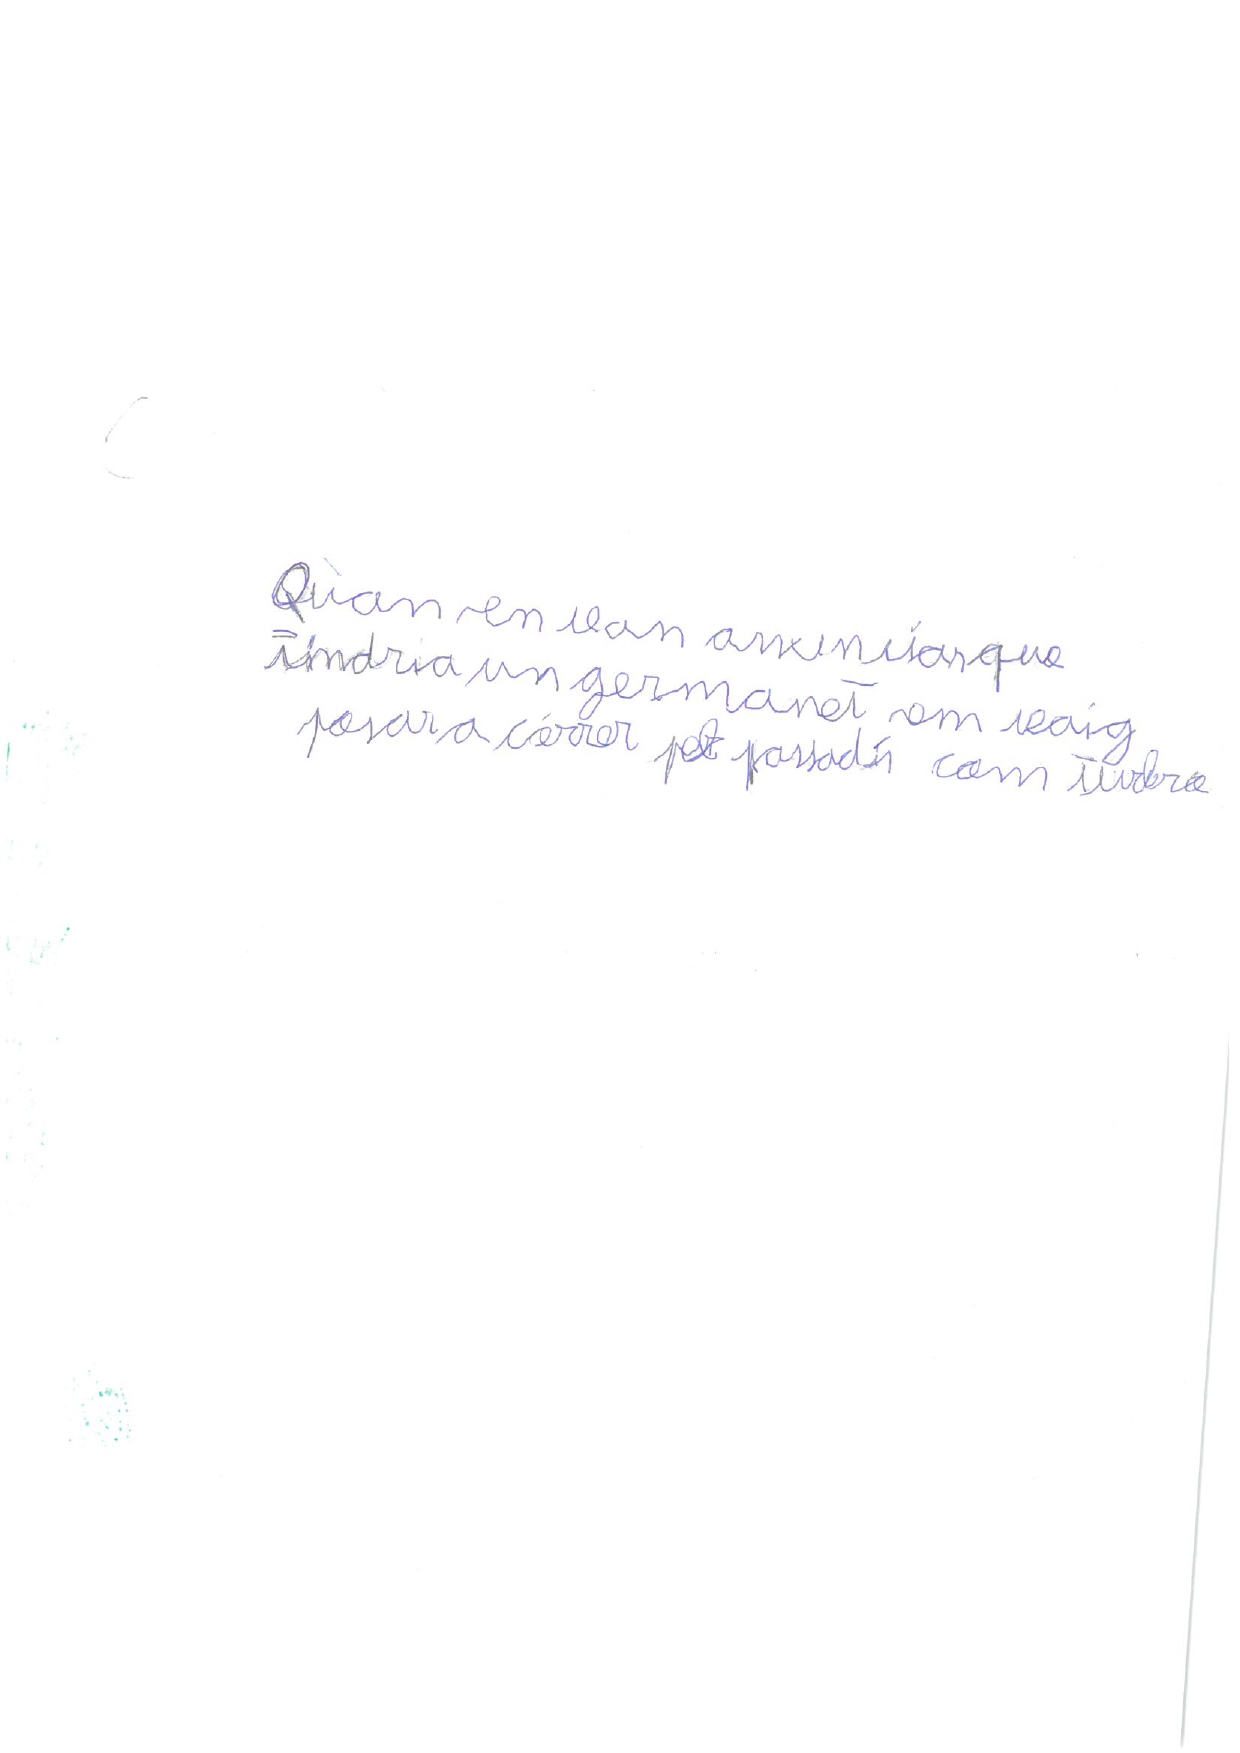 Qùan en van anxenciar que
tindria un germanet em vaig
posar a córrer pel passadís com